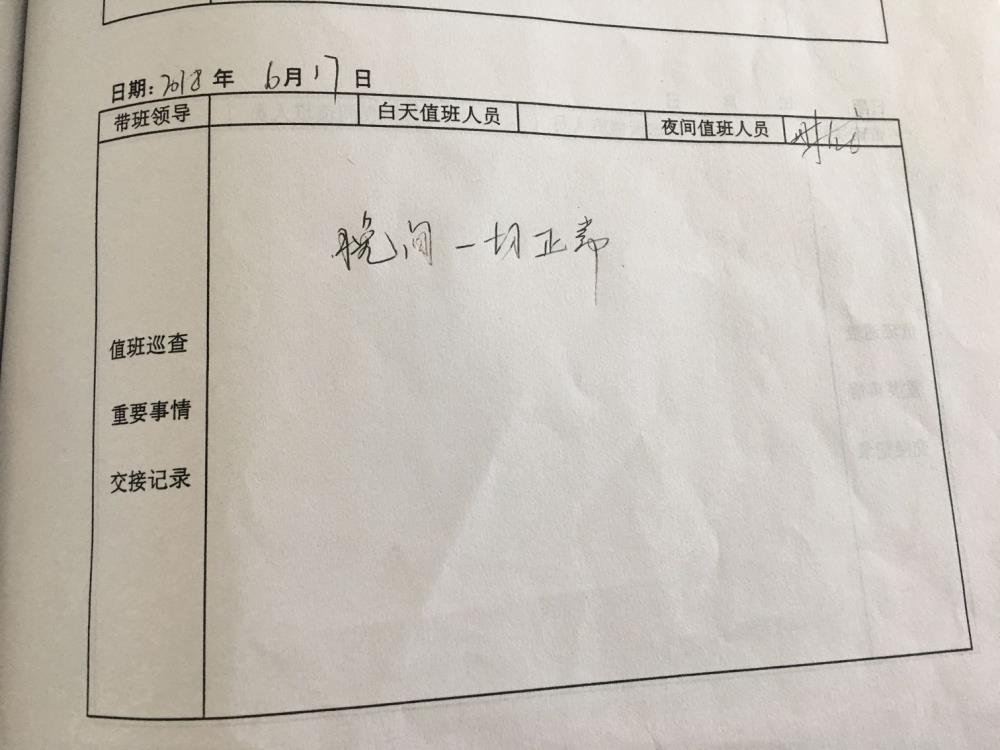 日期：2018年 6月17日
带班领导 白天值班人员 夜间值班人员
晚间一切正常
值班巡查
重要事情
交接记录